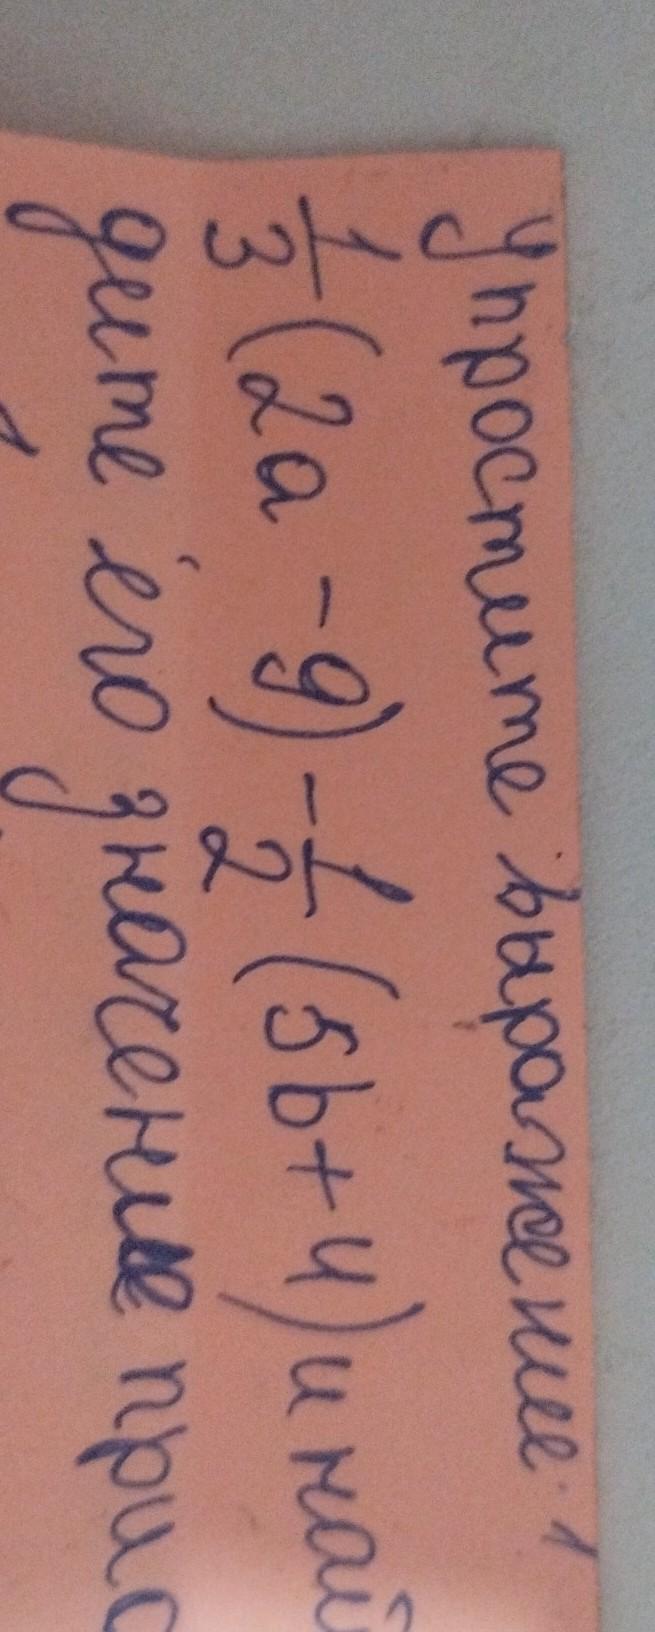 Упростите выражение
1/3 (2a - 9) - 1/2 (5b + 4) и най
дите его значение при